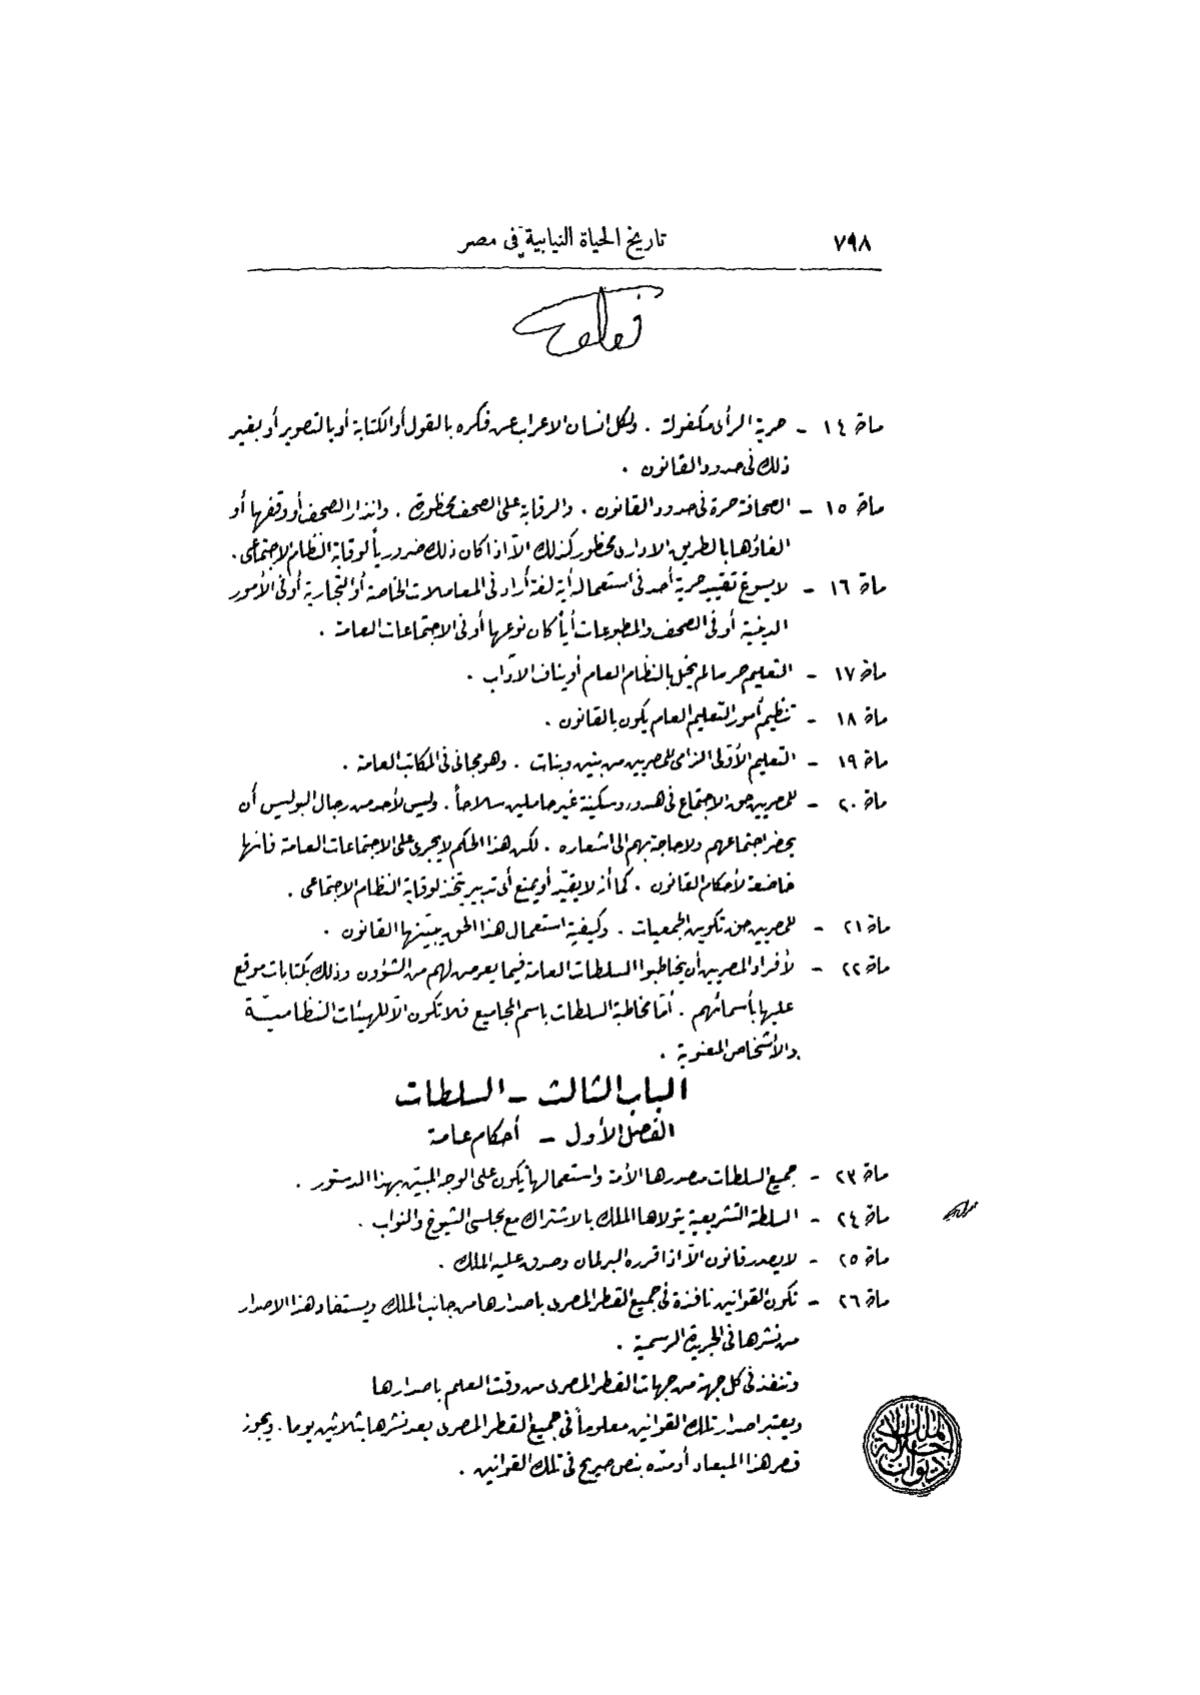 ٧٩٨ تاريخ الحياة النيابية في مصر
مادة ١٤ - حرية الرأى مكفولة . ولكل انسان الاعراب عن فكره بالقول أو الكتابة أو بالتصوير أو بغير
ذلك فى حدود القانون .
مادة ١٥ - الصحافة حرة فى حدود القانون . والرقابة على الصحف محظورة . وانذار الصحف أو وقفها أو
الغاؤها بالطريق الادارى محظور كذلك الاّ اذا كان ذلك ضرورياً لوقاية النظام الاجتماعى .
مادة ١٦ - لا يسوغ تقييد حرية أحد فى استعمال أية لغة أراد فى المعاملات الخاصة أو التجارية أو فى الأمور
الدينية أو فى الصحف والمطبوعات أياً كان نوعها أو فى الاجتماعات العامة .
مادة ١٧ - التعليم حر ما لم يخل بالنظام العام أو يناف الآداب .
مادة ١٨ - تنظيم أمور التعليم العام يكون بالقانون .
مادة ١٩ - التعليم الأوّلى الزامى للمصريين من بنين وبنات . وهو مجانى فى المكاتب العامة .
مادة ٢٠ - للمصريين حق الاجتماع فى هدوء وسكينة غير حاملين سلاحاً . وليس لأحد من رجال البوليس أن
يحضر اجتماعهم ولا حاجة بهم الى اشعاره . لكن هذا الحكم لا يجرى على الاجتماعات العامة فانها
خاضعة لأحكام القانون . كما أنه لا يقيّد أو يمنع أى تدبير يتخذ لوقاية النظام الاجتماعى .
مادة ٢١ - للمصريين حق تكوين الجمعيات . وكيفية استعمال هذا الحق يبيّنها القانون .
مادة ٢٢ - لأفراد المصريين أن يخاطبوا السلطات العامة فيما يعرض لهم من الشؤون وذلك بكتابات موقع
عليها بأسمائهم . أمّا مخاطبة السلطات باسم المجاميع فلا تكون الاّ للهيئات النظاميّة
والأشخاص المعنوية .
الباب الثالث - السلطات
الفصل الأول - أحكام عامة
مادة ٢٣ - جميع السلطات مصدرها الأمة واستعمالها يكون على الوجه المبيّن بهذا الدستور .
مادة ٢٤ - السلطة التشريعية يتولاها الملك بالاشتراك مع مجلسى الشيوخ والنواب .
مادة ٢٥ - لا يصدر قانون الاّ اذا قرره البرلمان وصدق عليه الملك .
مادة ٢٦ - تكون القوانين نافذة فى جميع القطر المصرى باصدارها من جانب الملك ويستفاد هذا الاصدار
من نشرها فى الجريدة الرسمية .
وتنفذ فى كل جهة من جهات القطر المصرى من وقت العلم باصدارها
ويعتبر اصدار تلك القوانين معلوماً فى جميع القطر المصرى بعد نشرها بثلاثين يوما . ويجوز
قصر هذا الميعاد أو مدّه بنص صريح فى تلك القوانين .
ديوان جلالة الملك